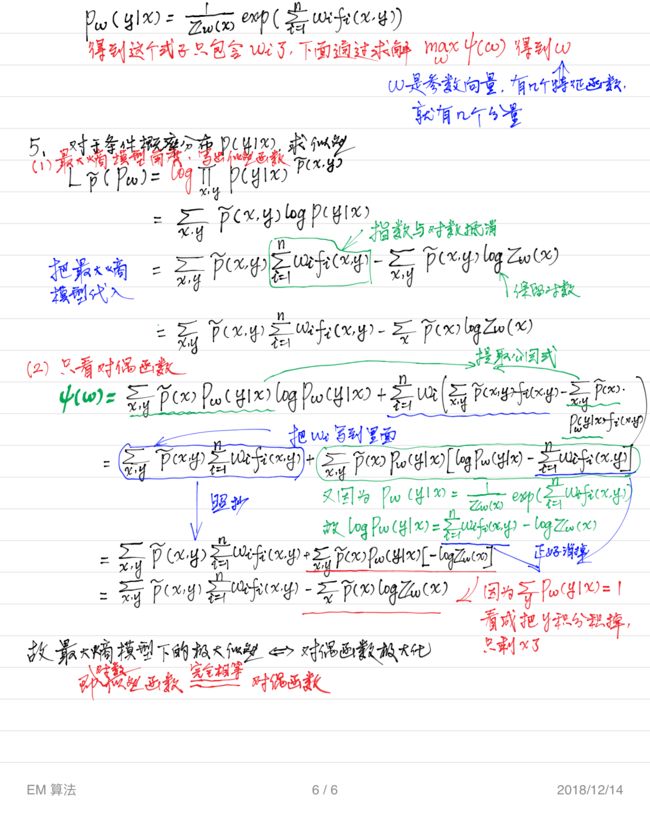 Pw(y|x) = 1/Zw(x) exp(∑_{i=1}^{n} wifi(x,y))
得到这个式子只包含 wi了，下面通过求解 max_w ψ(w) 得到w
w是参数向量，有几个特征函数，
就有几个分量
5、对于条件概率分布 P(y|x)，求似然
(1) 最大熵模型角度，写出似然函数
L p̃(Pw) = log ∏_{x,y} P(y|x)^{p̃(x,y)}
= ∑_{x,y} p̃(x,y) log P(y|x)
指数与对数抵消
把最大熵
模型代入
= ∑_{x,y} p̃(x,y) ∑_{i=1}^{n} wifi(x,y) - ∑_{x,y} p̃(x,y) log Zw(x)
保留对数
= ∑_{x,y} p̃(x,y) ∑_{i=1}^{n} wifi(x,y) - ∑_x p̃(x) log Zw(x)
(2) 只看对偶函数
提取公因式
ψ(w) = ∑_{x,y} p̃(x) Pw(y|x) log Pw(y|x) + ∑_{i=1}^{n} wi(∑_{x,y} p̃(x,y) fi(x,y) - ∑_{x,y} p̃(x)·
Pw(y|x) fi(x,y))
把wi写到里面
= ∑_{x,y} p̃(x,y) ∑_{i=1}^{n} wifi(x,y) + ∑_{x,y} p̃(x) Pw(y|x) [log Pw(y|x) - ∑_{i=1}^{n} wifi(x,y)]
照抄
又因为 Pw(y|x) = 1/Zw(x) exp(∑_{i=1}^{n} wifi(x,y))
故 log Pw(y|x) = ∑_{i=1}^{n} wifi(x,y) - log Zw(x)
正好消掉
= ∑_{x,y} p̃(x,y) ∑_{i=1}^{n} wifi(x,y) + ∑_{x,y} p̃(x) Pw(y|x) [-log Zw(x)]
= ∑_{x,y} p̃(x,y) ∑_{i=1}^{n} wifi(x,y) - ∑_x p̃(x) log Zw(x)
因为 ∑_y Pw(y|x) = 1
看成把y积分积掉，
只剩x了
故最大熵模型下的极大似然 ⇔ 对偶函数极大化
即对数似然函数 完全相等 对偶函数
EM 算法
6 / 6
2018/12/14